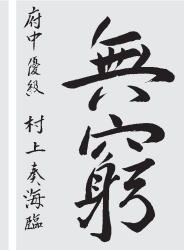 無窮
府中 優級 村上奏海臨